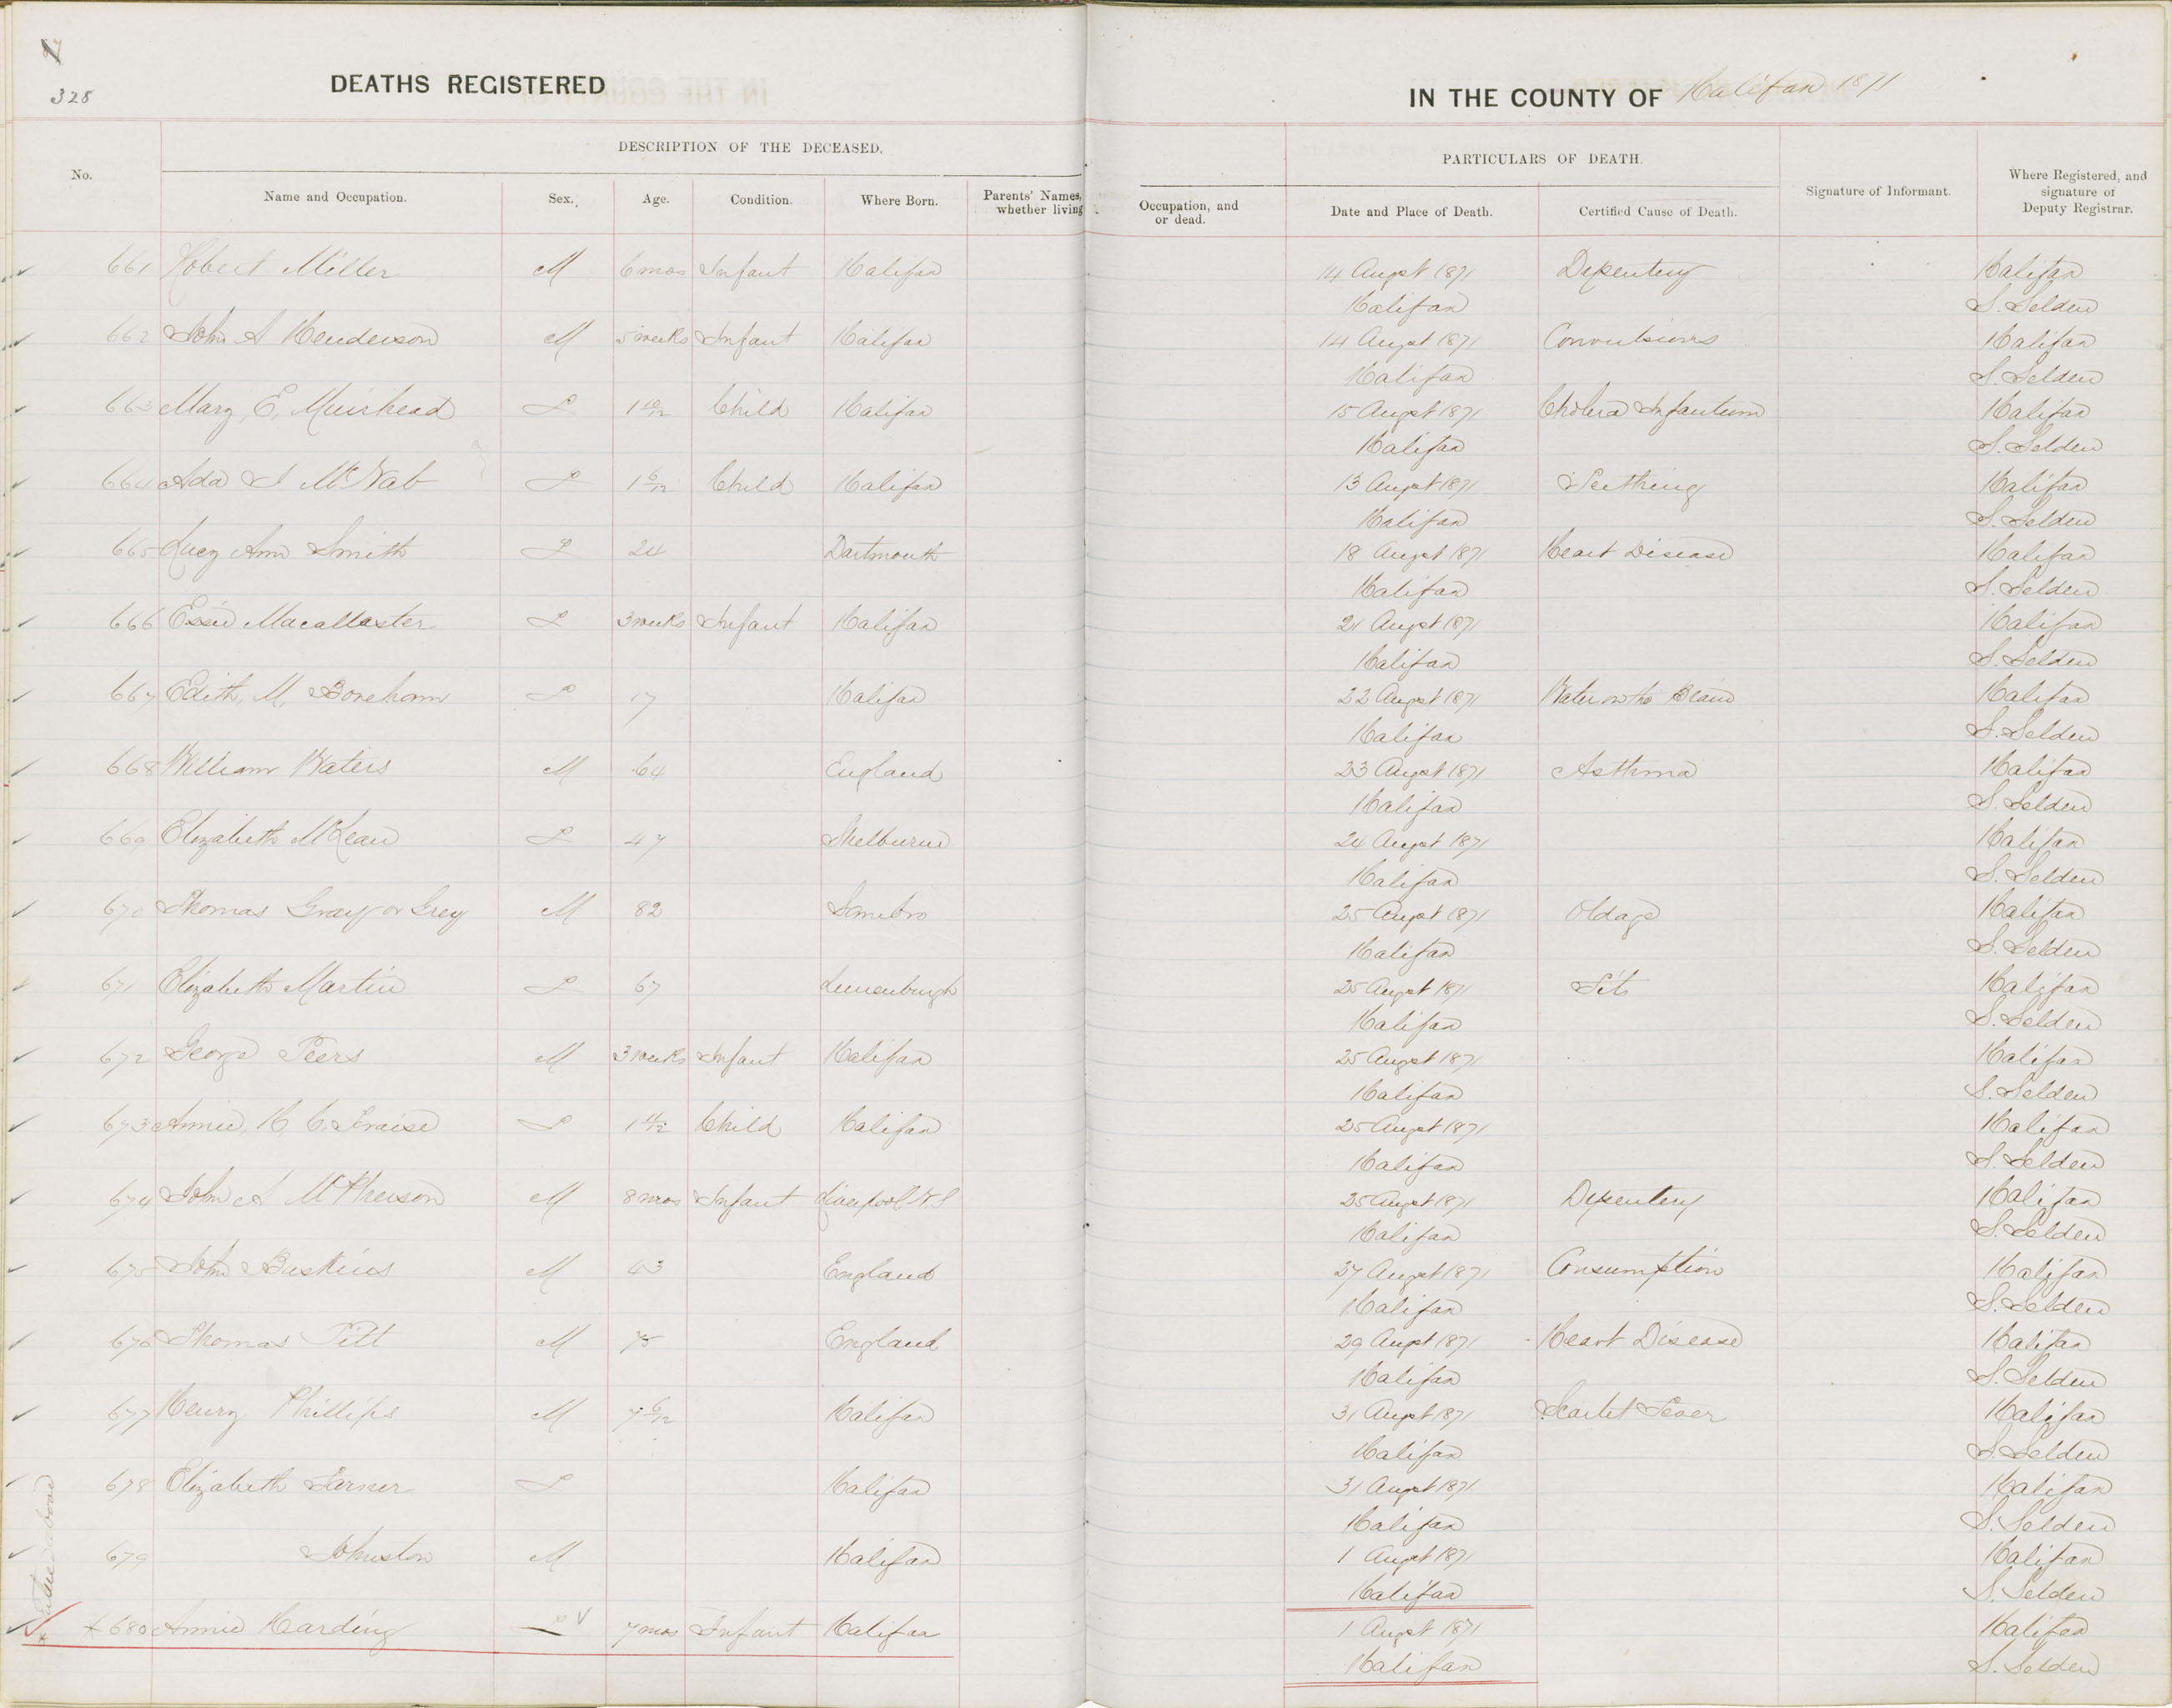 328
DEATHS REGISTERED
IN THE COUNTY OF Halifax 1871
No.
DESCRIPTION OF THE DECEASED.
PARTICULARS OF DEATH.
Name and Occupation.
Sex.
Age.
Condition.
Where Born.
Parents' Names, whether living
Occupation, and or dead.
Date and Place of Death.
Certified Cause of Death.
Signature of Informant.
Where Registered, and signature of Deputy Registrar.
661 Robert Miller M 6 mos Infant Halifax 14 Augst 1871 Dysentery Halifax
Halifax S. Selden
662 John S Henderson M 5 weeks Infant Halifax 14 Augst 1871 Convulsions Halifax
Halifax S. Selden
663 Mary, E, Muirhead F 1 10/12 Child Halifax 15 Augst 1871 Cholera Infantum Halifax
Halifax S. Selden
664 Ada I McNab F 1 6/12 Child Halifax 13 Augst 1871 Teething Halifax
Halifax S. Selden
665 Lucy Ann Smith F 24 Dartmouth 18 Augst 1871 Heart Disease Halifax
Halifax S. Selden
666 Essie Macallaster F 3 weeks Infant Halifax 21 Augst 1871 Halifax
Halifax S. Selden
667 Edith, M, Boreham F 17 Halifax 22 Augst 1871 Water on the Brain Halifax
Halifax S. Selden
668 William Waters M 64 England 23 Augst 1871 Asthma Halifax
Halifax S. Selden
669 Elizabeth McKean F 47 Shelburne 24 Augst 1871 Halifax
Halifax S. Selden
670 Thomas Gray or Grey M 82 Sambro 25 Augst 1871 Old age Halifax
Halifax S. Selden
671 Elizabeth Martin F 67 Lunenburgh 25 Augst 1871 Fits Halifax
Halifax S. Selden
672 George Peers M 3 weeks Infant Halifax 25 Augst 1871 Halifax
Halifax S. Selden
673 Annie, H, C. Fraise F 1 4/12 Child Halifax 25 Augst 1871 Halifax
Halifax S. Selden
674 John A McPherson M 8 mos Infant Liverpool N.S 25 Augst 1871 Dysentery Halifax
Halifax S. Selden
675 John Baskins M 43 England 27 Augst 1871 Consumption Halifax
Halifax S. Selden
676 Thomas Pitt M 75 England 29 Augst 1871 Heart Disease Halifax
Halifax S. Selden
677 Henry Phillips M 7 6/12 Halifax 31 Augst 1871 Scarlet Fever Halifax
Halifax S. Selden
678 Elizabeth Farner F Halifax 31 Augst 1871 Halifax
Halifax S. Selden
679 Johnston M Halifax 1 Augst 1871 Halifax
Halifax S. Selden
680 Annie Harding Infant 7 mos Halifax 1 Augst 1871 Halifax
Halifax S. Selden